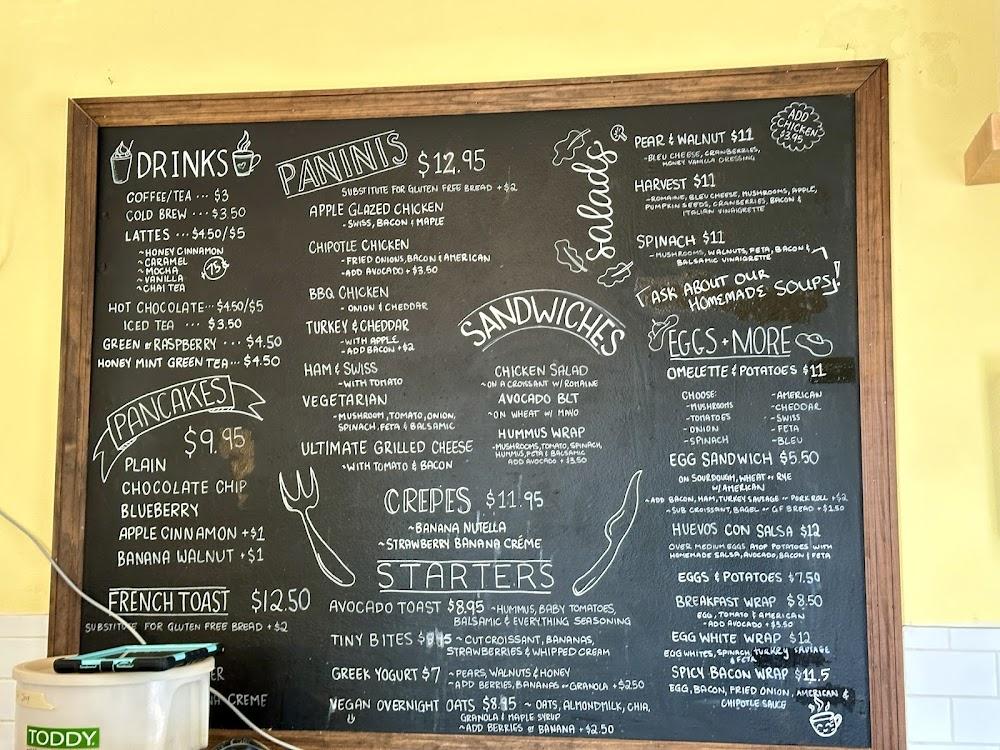 DRINKS
COFFEE/TEA ... $3
COLD BREW ... $3.50
LATTES ... $4.50/$5
~HONEY CINNAMON
~CARAMEL
~MOCHA
~VANILLA
~CHAI TEA
.75¢
HOT CHOCOLATE... $4.50/$5
ICED TEA ... $3.50
GREEN or RASPBERRY ... $4.50
HONEY MINT GREEN TEA... $4.50
PANCAKES
$9.95
PLAIN
CHOCOLATE CHIP
BLUEBERRY
APPLE CINNAMON +$1
BANANA WALNUT +$1
FRENCH TOAST $12.50
SUBSTITUTE FOR GLUTEN FREE BREAD +$2
CREME
TODDY
PANINIS $12.95
SUBSTITUTE FOR GLUTEN FREE BREAD +$2
APPLE GLAZED CHICKEN
-SWISS, BACON & MAPLE
CHIPOTLE CHICKEN
-FRIED ONIONS, BACON & AMERICAN
-ADD AVOCADO +$3.50
BBQ CHICKEN
-ONION & CHEDDAR
TURKEY & CHEDDAR
-WITH APPLE
-ADD BACON +$2
HAM & SWISS
-WITH TOMATO
VEGETARIAN
-MUSHROOM, TOMATO, ONION,
SPINACH, FETA & BALSAMIC
ULTIMATE GRILLED CHEESE
-WITH TOMATO & BACON
SANDWICHES
CHICKEN SALAD
~ON A CROISSANT W/ ROMAINE
AVOCADO BLT
~ON WHEAT W/ MAYO
HUMMUS WRAP
-MUSHROOMS, TOMATO, SPINACH,
HUMMUS, FETA & BALSAMIC
ADD AVOCADO +$3.50
CREPES $11.95
~BANANA NUTELLA
~STRAWBERRY BANANA CRÉME
STARTERS
AVOCADO TOAST $8.95 ~HUMMUS, BABY TOMATOES,
BALSAMIC & EVERYTHING SEASONING
TINY BITES ~CUT CROISSANT, BANANAS,
STRAWBERRIES & WHIPPED CREAM
GREEK YOGURT $7 ~PEARS, WALNUTS & HONEY
~ADD BERRIES, BANANAS or GRANOLA +$2.50
VEGAN OVERNIGHT OATS $8.95 ~OATS, ALMONDMILK, CHIA,
GRANOLA & MAPLE SYRUP
~ADD BERRIES or BANANA +$2.50
salads
ADD
CHICKEN
$3.95
PEAR & WALNUT $11
-BLEU CHEESE, CRANBERRIES,
HONEY VANILLA DRESSING
HARVEST $11
-ROMAINE, BLEU CHEESE, MUSHROOMS, APPLE,
PUMPKIN SEEDS, CRANBERRIES, BACON &
ITALIAN VINAIGRETTE
SPINACH $11
-MUSHROOMS, WALNUTS, FETA, BACON &
BALSAMIC VINAIGRETTE
ASK ABOUT OUR
HOMEMADE SOUPS!
EGGS + MORE
OMELETTE & POTATOES $11
CHOOSE:
-MUSHROOMS
-TOMATOES
-ONION
-SPINACH
-AMERICAN
-CHEDDAR
-SWISS
-FETA
-BLEU
EGG SANDWICH $5.50
ON SOURDOUGH, WHEAT or RYE
W/ AMERICAN
~ADD BACON, HAM, TURKEY SAUSAGE or PORK ROLL +$2
~SUB CROISSANT, BAGEL or GF BREAD +$1.50
HUEVOS CON SALSA $12
OVER MEDIUM EGGS ATOP POTATOES WITH
HOMEMADE SALSA, AVOCADO, BACON & FETA
EGGS & POTATOES $7.50
BREAKFAST WRAP $8.50
EGG, TOMATO & AMERICAN
-ADD AVOCADO +$3.50
EGG WHITE WRAP $12
EGG WHITES, SPINACH, TURKEY SAUSAGE
& FETA
SPICY BACON WRAP $11.5
EGG, BACON, FRIED ONION, AMERICAN &
CHIPOTLE SAUCE